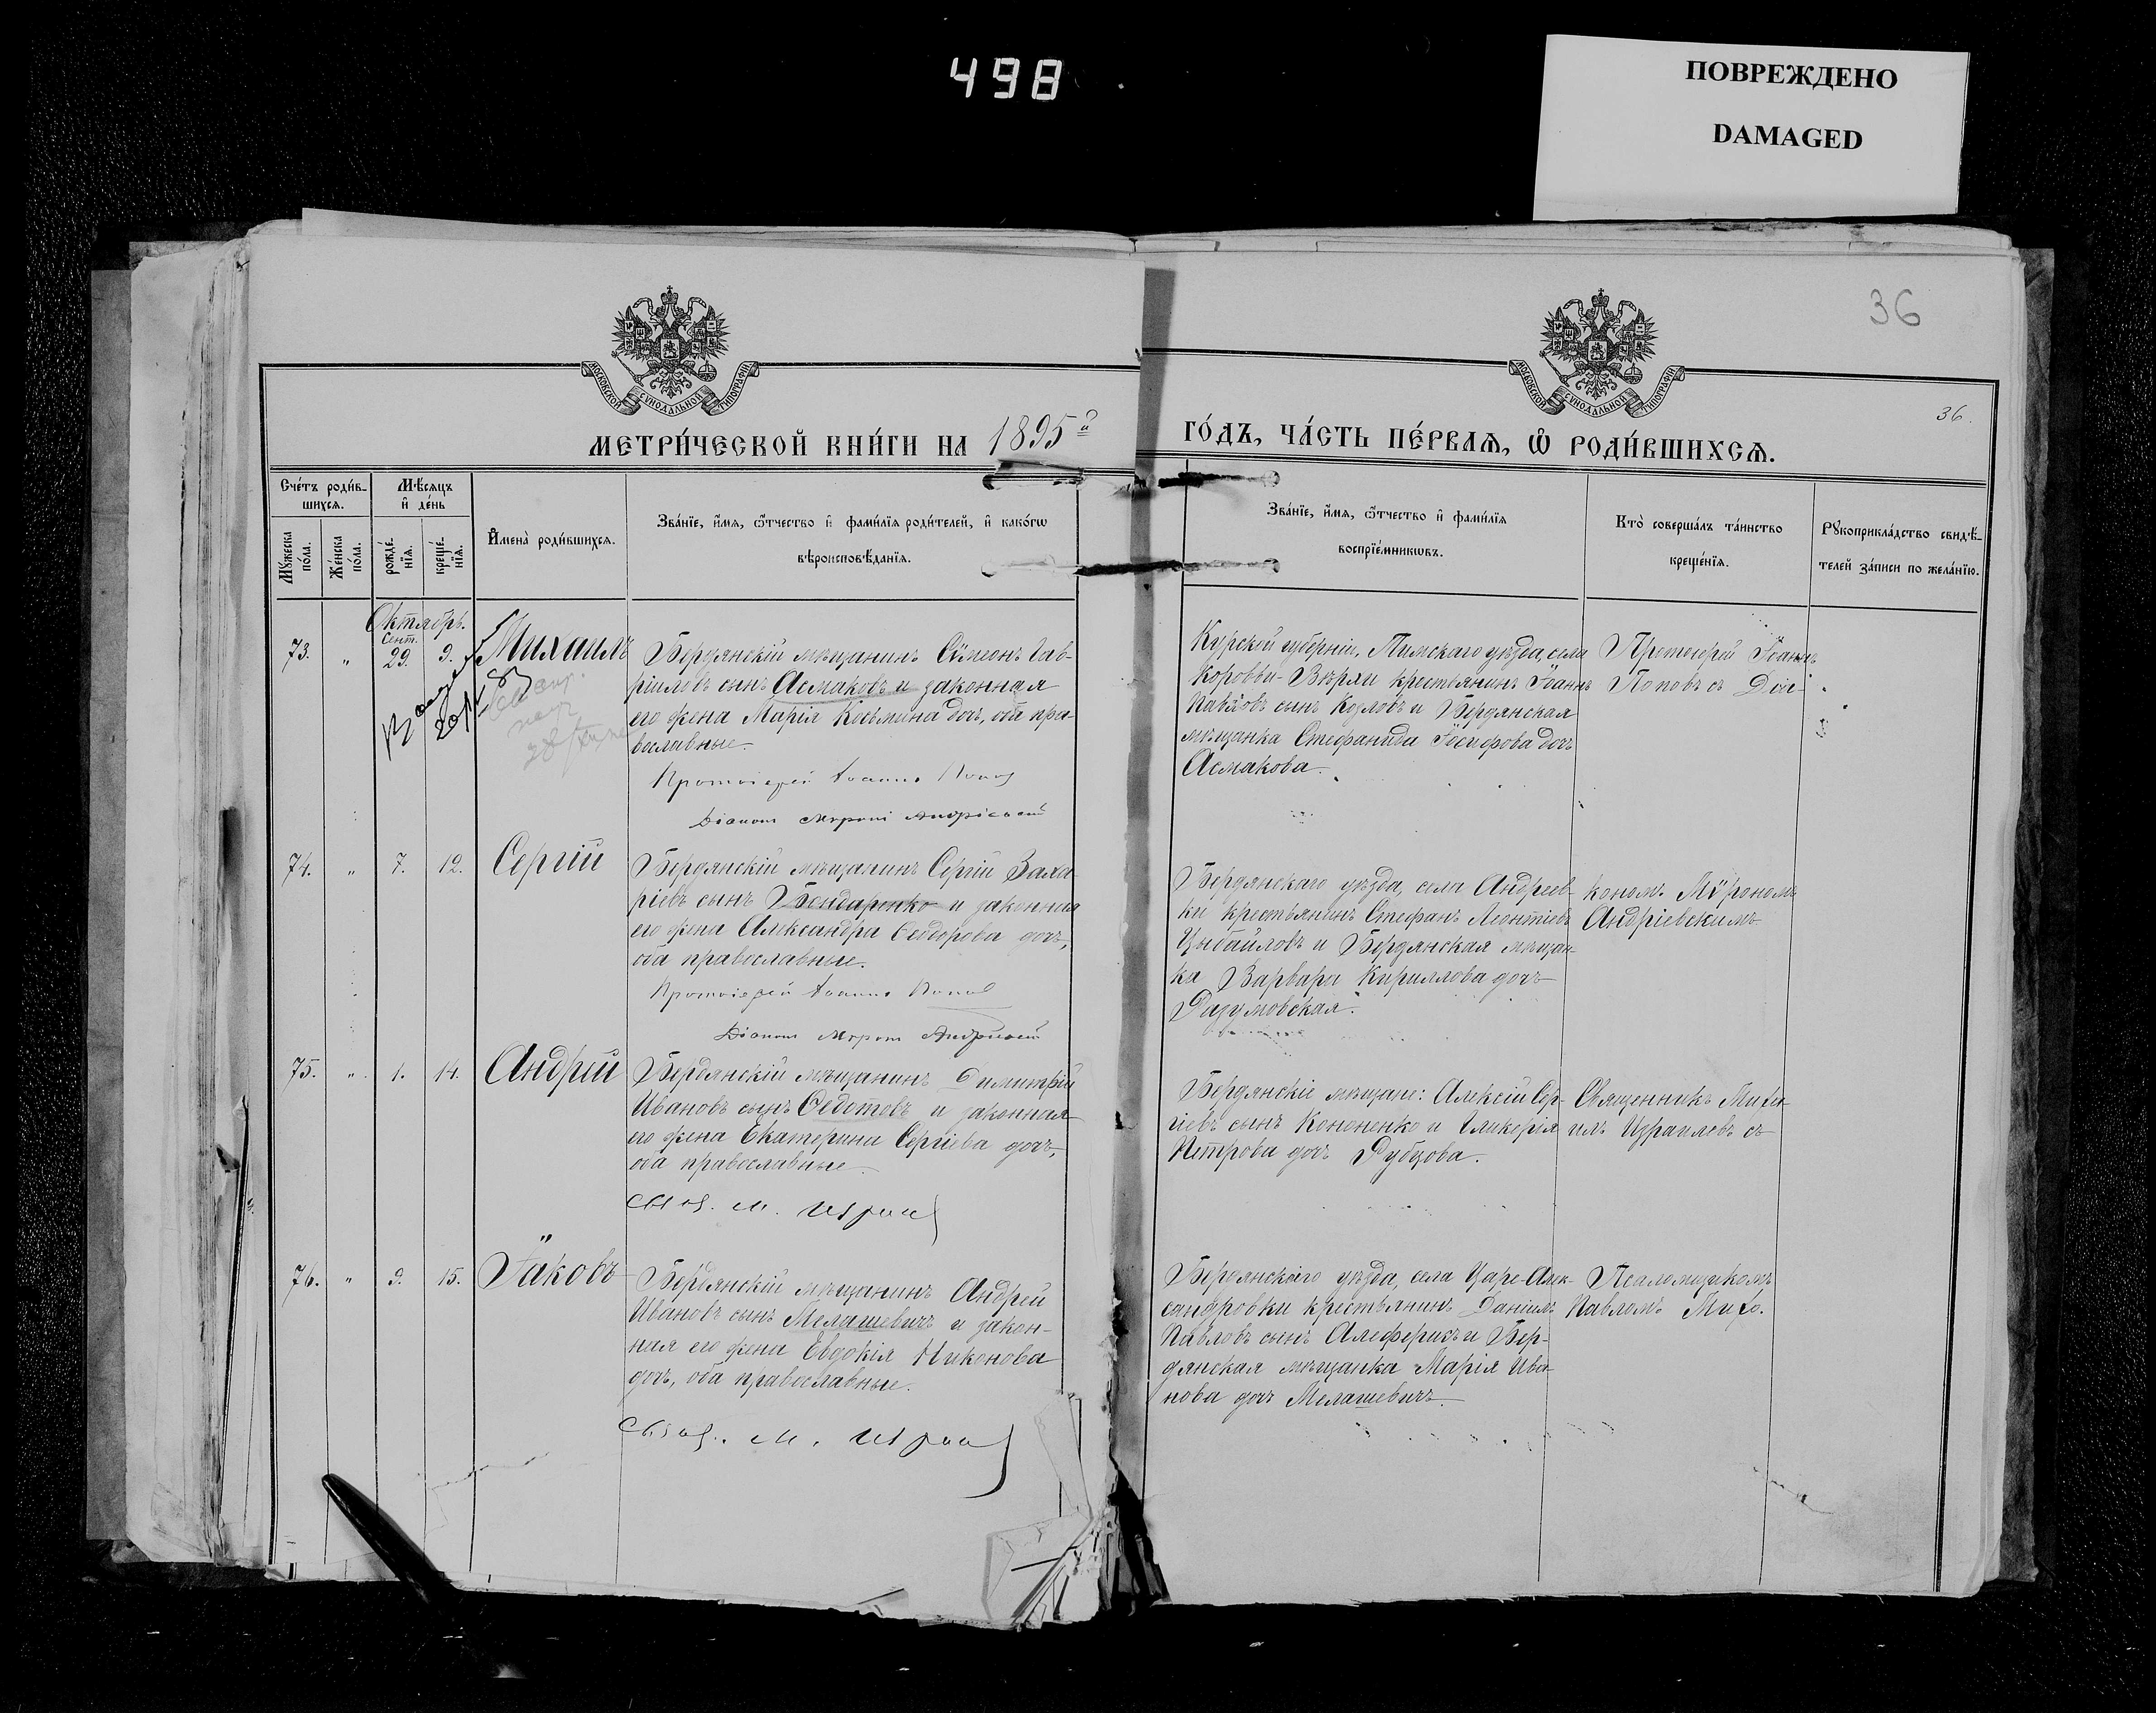 498
ПОВРЕЖДЕНО
DAMAGED
36
МОСКОВСКОЙ СѴНОДАЛЬНОЙ ТИПОГРАФІИ
МОСКОВСКОЙ СѴНОДАЛЬНОЙ ТИПОГРАФІИ
36.
МЕТРИ́ЧЕСКОЙ КНИ́ГИ НА 1895й
ГО́ДЪ, ЧА́СТЬ ПЕ́РВАѦ, Ѡ҆ РОДИ́ВШИХСѦ.
Сче́тъ роди́в-
шихсѧ.
Мꙋ́жеска по́ла.
Же́нска по́ла.
Мѣ́сѧцъ
и҆ де́нь
рожде́нїѧ.
креще́нїѧ.
И҆мена̀ роди́вшихсѧ.
Зва́нїе, и҆́мѧ, ѻ҆́тчество и҆ фами́лїѧ роди́телей, и҆ како́гѡ
вѣроисповѣ́данїѧ.
Зва́нїе, и҆́мѧ, ѻ҆́тчество и҆ фами́лїѧ
воспрїе́мникѡвъ.
Кто̀ соверша́лъ та́инство
креще́нїѧ.
Рꙋкоприкла́дство свидѣ́-
телей за́писи по жела́нїю.
Октябрь.
73. " Сент. 29. 9. Михаилъ
Бердянскій мѣщанинъ Сѵмеонъ Гав-
ріиловъ сынъ Асмаковъ и законная
его жена Марія Косьмина дочь, оба пра-
вославные.
Протоіерей Іоаннъ Попов
Діаконъ Миронъ Андріевскій
Курской губерніи, Тимскаго уѣзда, села
Коровьи-Верхи крестьянинъ Іоаннъ
Павловъ сынъ Козловъ и Бердянская
мѣщанка Стефанида Іосифова дочь
Асмакова.
Протоіерей Іоаннъ
Поповъ съ Діа-
74. " 7. 12. Сергій
Бердянскій мѣщанинъ Сергій Заха-
ріевъ сынъ Бондаренко и законная
его жена Александра Ѳеодорова дочь,
оба православные.
Протоіерей Іоаннъ Попов
Діаконъ Миронъ Андріевскій
Бердянскаго уѣзда, села Андреев-
ки крестьянинъ Стефанъ Леонтіевъ
Цыбайловъ и Бердянская мѣщан-
ка Варвара Кириллова дочь
Разумовская.
кономъ Мѵрономъ
Андріевскимъ.
75. " 1. 14. Андрей
Бердянскій мѣщанинъ Димитрій
Ивановъ сынъ Ѳедотовъ и законная
его жена Екатерина Сергіева дочь,
оба православные.
Свящ. М. Израил
Бердянскіе мѣщане: Алексій Сер-
гіевъ сынъ Кононенко и Гликерія
Петрова дочь Рубцова.
Священникъ Миха-
илъ Израилевъ съ
76. " 9. 15. Іаковъ
Бердянскій мѣщанинъ Андрей
Ивановъ сынъ Мелашевичъ и закон-
ная его жена Евдокія Никонова
дочь, оба православные.
Свящ. М. Израил
Бердянскаго уѣзда, села Царе-Алек-
сандровки крестьянинъ Даніилъ
Павловъ сынъ Алефериси и Бер-
дянская мѣщанка Марія Ива-
нова дочь Мелашевичъ.
Псаломщикомъ
Павломъ Михо.